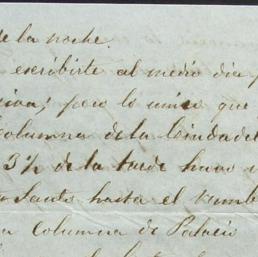 de la noche.
escribirte al medio dia p
pero lo unico que
Columna de la Ciudadel
3½ de la tarde hubo u
Santo hasta el rumb
a columna de Palacio